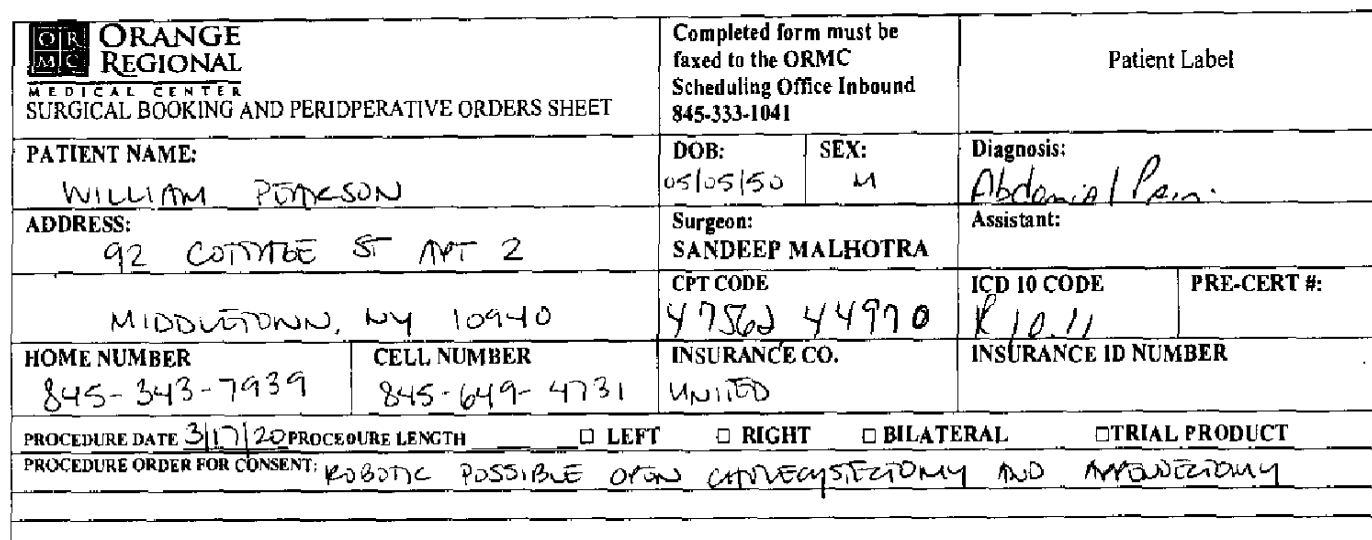 OR MC ORANGE REGIONAL
MEDICAL CENTER
SURGICAL BOOKING AND PERIDPERATIVE ORDERS SHEET
Completed form must be
faxed to the ORMC
Scheduling Office Inbound
845-333-1041
Patient Label
PATIENT NAME:
WILLIAM PEARSON
DOB:
05/05/50
SEX:
M
Diagnosis:
Abdominal Pain.
ADDRESS:
92 COTTAGE ST APT 2
Surgeon:
SANDEEP MALHOTRA
Assistant:
MIDDLETOWN, NY 10940
CPT CODE
47562 44970
ICD 10 CODE
R10.11
PRE-CERT #:
HOME NUMBER
845-343-7939
CELL NUMBER
845-649-4731
INSURANCE CO.
UNITED
INSURANCE ID NUMBER
PROCEDURE DATE 3/17/20 PROCEOURE LENGTH ☐ LEFT ☐ RIGHT ☐ BILATERAL ☐TRIAL PRODUCT
PROCEDURE ORDER FOR CONSENT: ROBOTIC POSSIBLE OPEN CHOLECYSTECTOMY AND APPENDECTOMY